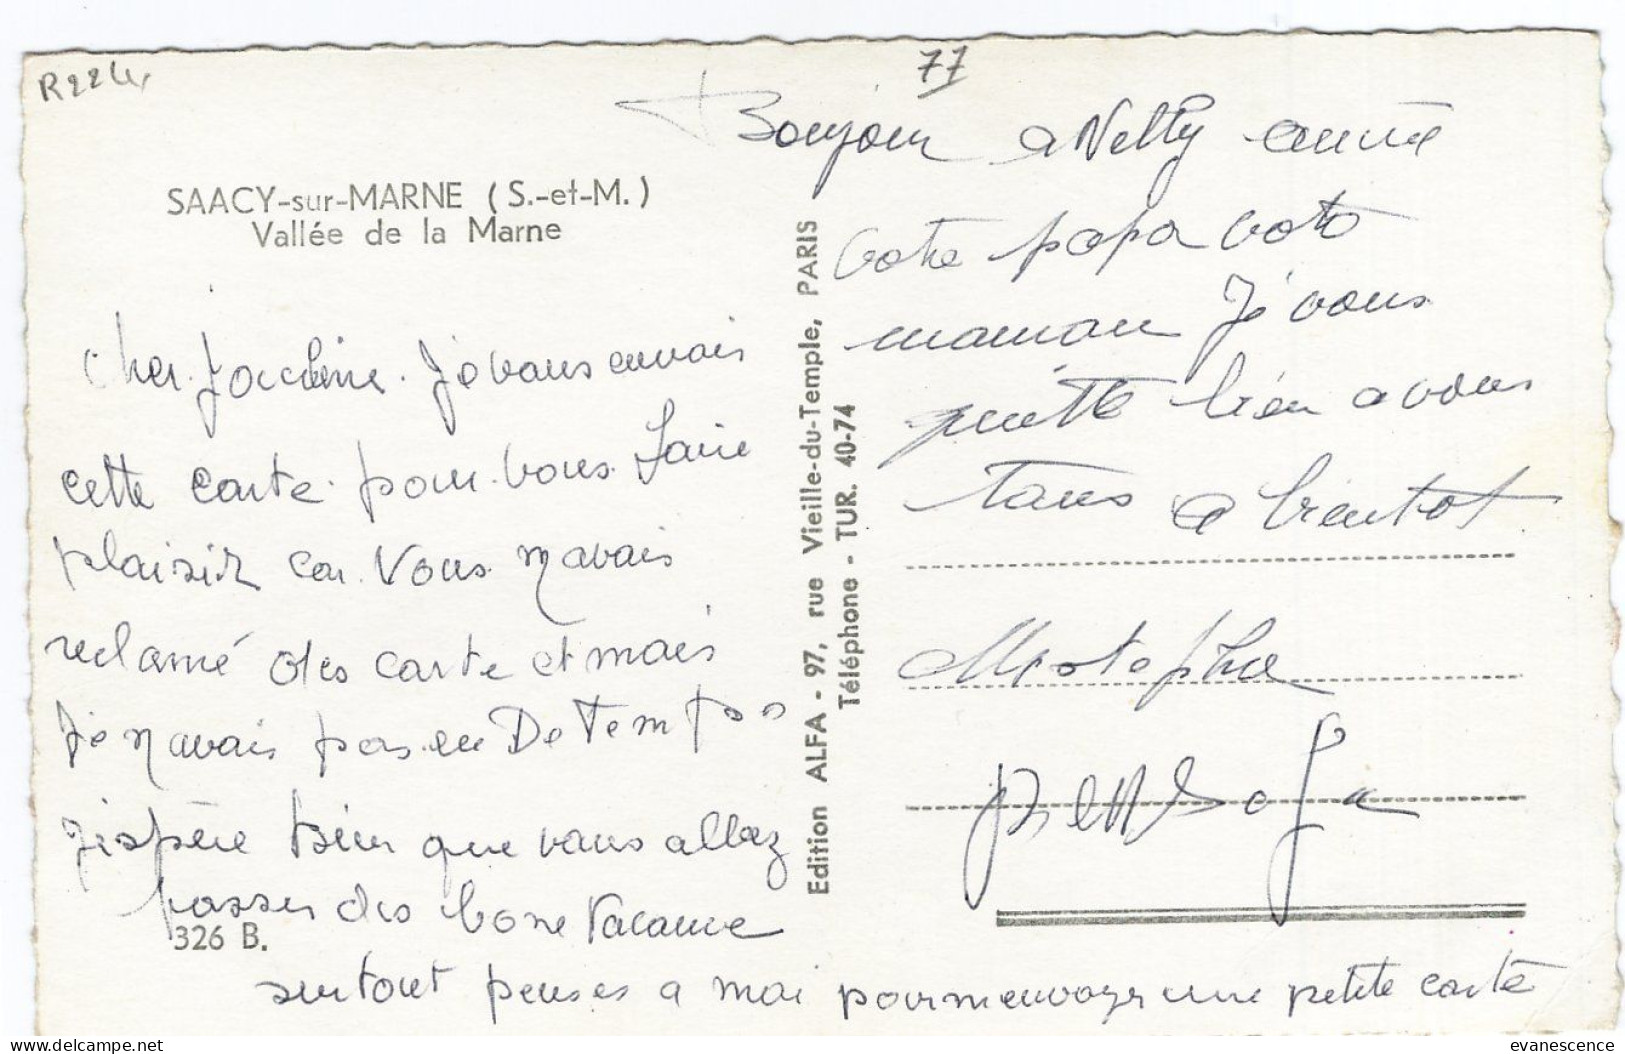 77
SAACY-sur-MARNE (S.-et-M.)
Vallée de la Marne
Cher. Joceline. Je vous envais
cette carte. pour. vous. faire
plaisir car. Vous. m avais
reclamé des carte et mais
Je n avais pas. eu De Temps
J'espère bien que vous allez
passer des bone Vacance
326 B.
surtout penses a moi pourmenvoyer une petite carte
Edition ALFA - 97, rue Vieille-du-Temple, PARIS
Téléphone - TUR. 40-74
Bonjour a Nelly
votre papa votr
maman Je vous
quitte bien a vous
tous a bientot
Mostepha
evanescence